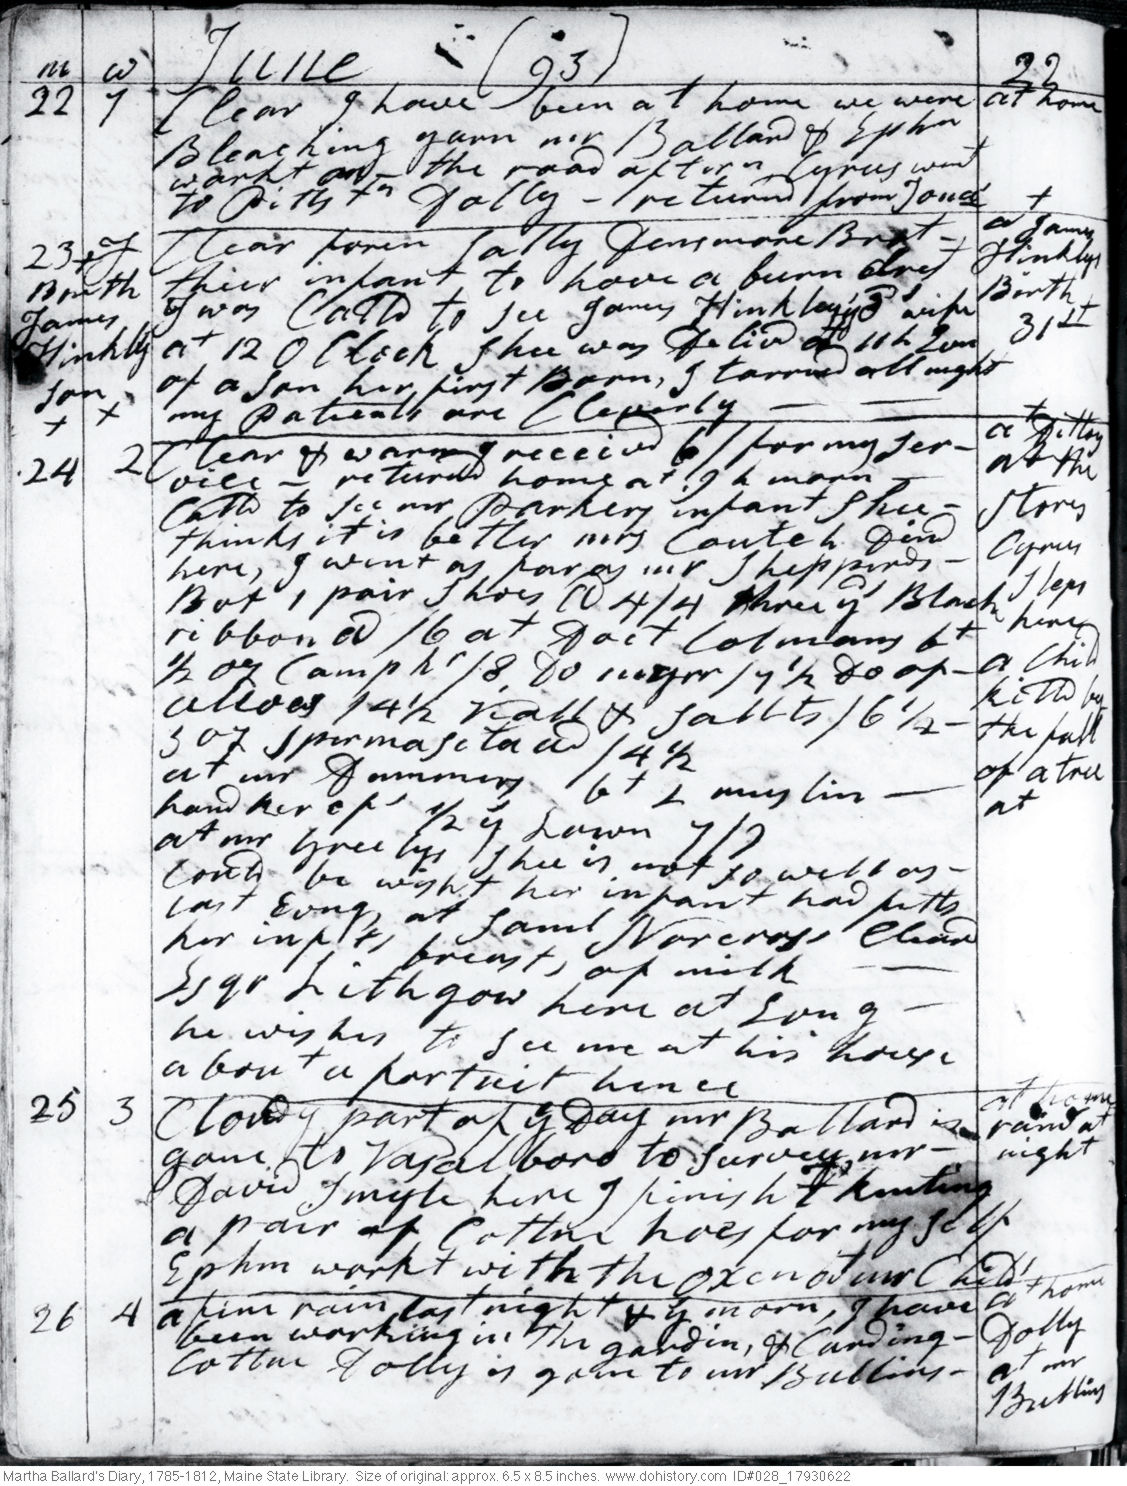 June (93) 22
m w
22 7 Clear I have been at home we were at home
Bleaching yarn mr Ballard & Ephm
workt on the road aftern Cyrus went
to Pittstn Dolly returnd from Jones
23 Clear foren Sally Densmore Brot a James
their infant to have a burn drest Hinklys
Birth I was Calld to see James Hinkley's wife Birth
James at 12 O Clock Shee was Delivd at 11 h Even 31st
Hinkly of a son her first Born, I tarried all night
Son my Patients are Cleverly
24 2 Clear & warm I received 6/ for my ser- at the
vice – returnd home at 9 h morn Stores
Calld to see mr Parkers infant Shee Cyrus
thinks it is better mrs Coutch Dind Sleps
here, I went as far as mr Shepperds here
Bot 1 pair Shoes @ 4/4 three yds Black
ribbon @ /6 at Doct Colmans bt
½ oz Camphr /8 Do /7½ Do op- a Child
/4½ & Sallts /6½ killd by
3 oz /4½ the fall
at mr Dummers bt 1 muslin of a tree
handkercfs ½ yd Lawn 7/9 at
at mr Greelys Shee is not so well as
Could be wisht her infant had fitts
last Evng, at Saml Norcross Cleard
her breasts of milk
Esqr Lithgow here at Evng
he wishes to see me at his house
about a fortnit hence
25 3 Cloudy part of ye Day mr Ballard is at home
gone to Vasalboro to survey mr raind at
David here I finisht knitting night
a pair of Cottne hoes for my self
Ephm workt with the oxen at mr Childs
26 4 a fine rain last night & ye morn, I have at home
been working in the gardin, & Carding Dolly
Cottne Dolly is gone to mr Bullins at mr
Bullins
Martha Ballard's Diary, 1785-1812, Maine State Library. Size of original: approx. 6.5 x 8.5 inches. www.dohistory.com ID#028_17930622